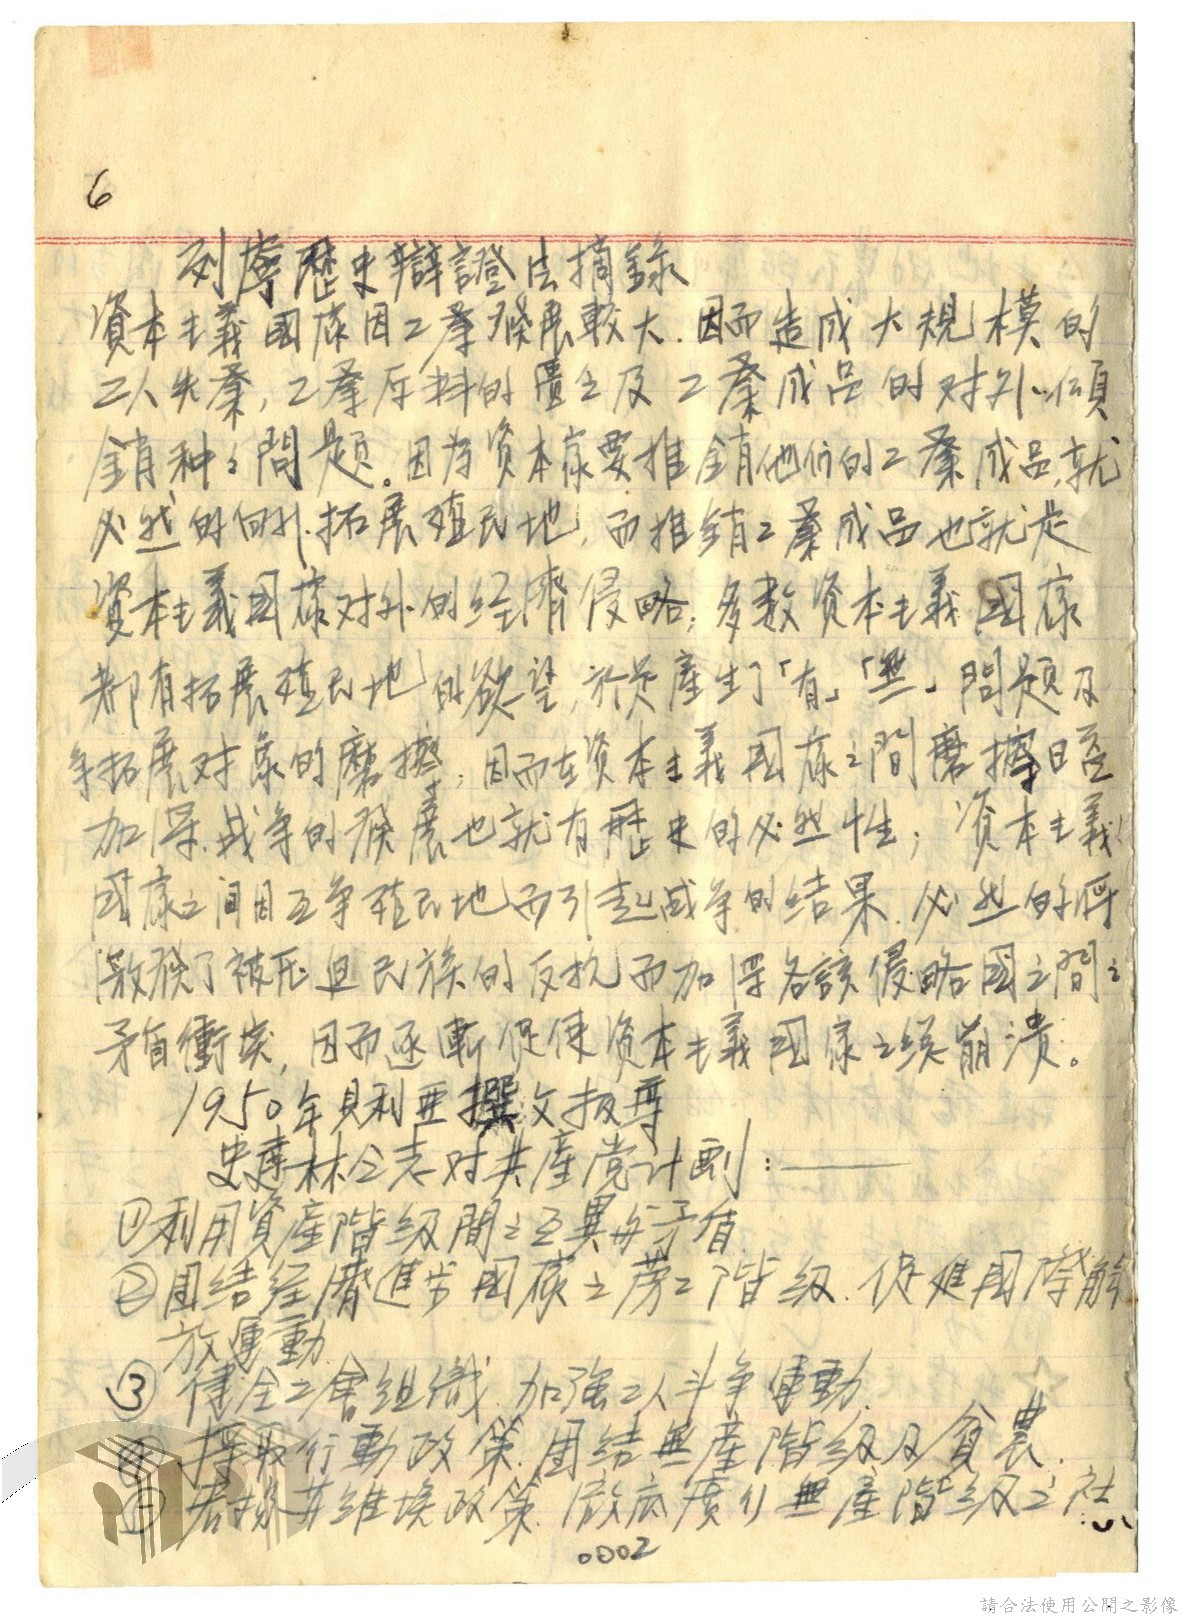 6
列寧歷史辯證法摘錄
資本主義國家因工業發展較大.因而造成大規模的
工人失業,工業原料的匱乏及工業成品的对外傾
銷种々問題。因為資本家要推銷他们的工業成品,就
必然的向外拓展殖民地,而推銷工業成品也就是
資本主義國家对外的经濟侵略;多數資本主義國家
都有拓展殖民地的欲望,於是產生了「有」「無」問題及
争拓展对象的磨擦,因而在資本主義國家之間磨擦日益
加深.战争的發展也就有歷史的必然性;資本主義
國家之间因互争殖民地而引起战争的结果.必然的将
激發了被压迫民族的反抗而加深各該侵略國之間之
矛盾衝突,因而逐漸促使資本主義國家之總崩潰。
1950年貝利亞撰文报導
史達林仝志对共產党计劃:——
①利用資產階级間之互異与矛盾
②團结经濟進步國家之劳工階级.促進國際解
放運動.
③健全工會组織.加強工人斗争運動.
④採取行動政策.團结無產階级及貧農.
⑤ 若扬苏維埃政策.徹底廣引無產階级之社
0002
請合法使用公開之影像